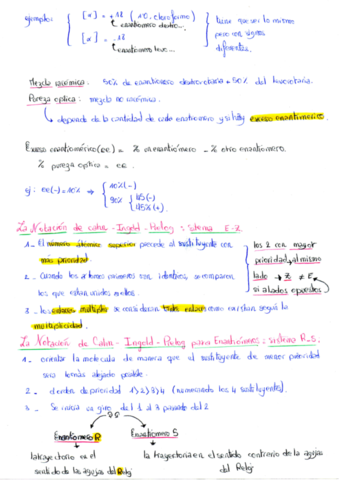 ejemplo: [α] = +12 (10, cloroformo) tiene que ser lo mismo
enantiómero dextro... pero con signos
[α] = -12 diferentes.
enantiómero levo...
Mezcla racémica: 50% de enantiómero dextrorotario + 50% del levorotario.
Pureza optica: mezcla no racémica.
depende de la cantidad de cada enantiomero y si hay exceso enantiomérico.
Exceso enantiomérico (ee) = % un enantiómero - % otro enantiomero.
% pureza optica = ee.
ej: ee(-) = 10% → 10% (-)
90% 45(-)
45%(+)
La Notación de Cahn - Ingold - Prelog : sistema E-Z.
1- El número atómico superior precede al sustituyente con los 2 con mayor
más prioridad prioridad, al mismo
2- Cuando los átomos son idénticos, se comparan lado → Z ≠ E
los que están unidos a ellos. si a lados opuestos
3- los enlaces múltiples se consideran como según la
multiplicidad.
La Notación de Cahn - Ingold - Prelog para Enantiómeros : sistema R-S.
1- orientar la molecula de manera que el sustituyente de menor prioridad
sea lo más alejado posible.
2- orden de prioridad 1>2>3>4 (numerando los 4 sustituyentes).
3- Se inicia un giro del 1 al 3 pasando del 2
Enantiómero R Enantiómero S
la trayectoria es el la trayectoria en el sentido contrario de la agujas
sentido de las agujas del Reloj del Reloj